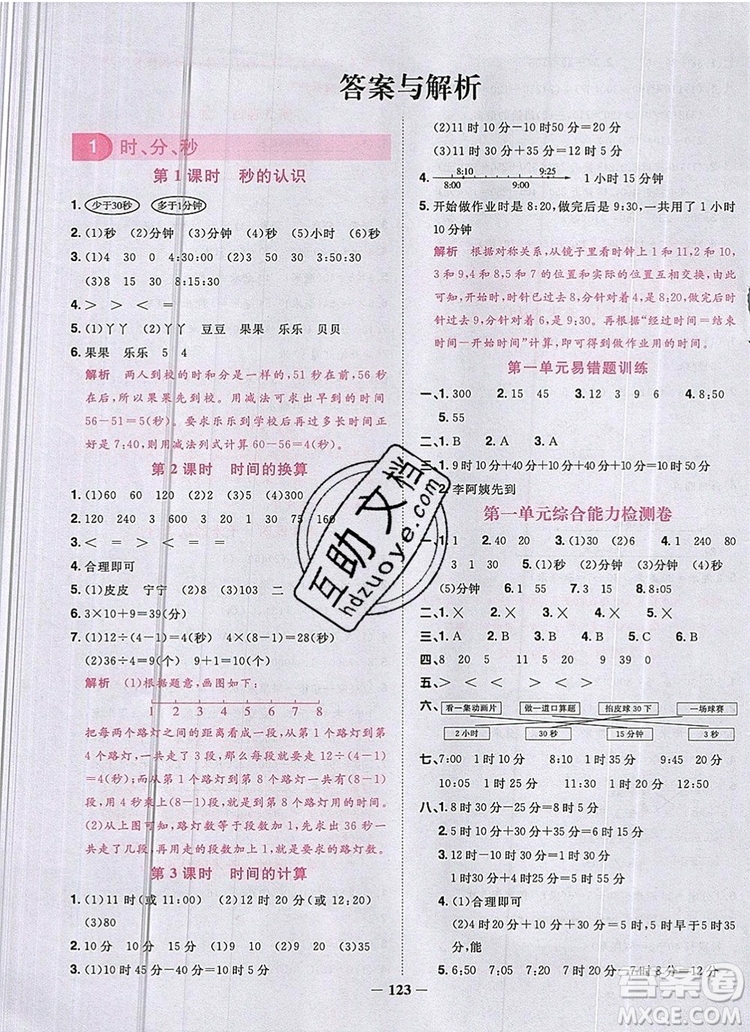 答案与解析
1 时、分、秒
第1课时 秒的认识
1. 少于30秒 多于1分钟
2. (1)秒 (2)分钟 (3)秒 (4)秒 (5)小时 (6)秒
3. (1)4 30 0 4:30:00 (2)8 30 50 8:30:50
(3)8 15 30 8:15:30
4. > > < = >
5. (1)丫丫 (2)丫丫 豆豆 果果 乐乐 贝贝
6. 果果 乐乐 5 4
解析 两人到校的时和分是一样的,51秒在56秒之
前,所以果果先到校。用减法可以求出果果早到
56-51=5(秒)。要求乐乐到学校后多长时间正
好是7:40,则用减法列式计算60-56=4(秒)。
第2课时 时间的换算
1. (1)60 (2)60 (3)12
2. 120 240 3 1 600 30 75 160
3. < = > < = >
4. 合理即可
5. (1)皮皮 宁宁 (2)8 (3)103 二
6. 3×10÷3=10(分)
7. (1)12÷(4-1)=4(秒) 4×(8-1)=28(秒)
(2)36÷4=9(个) 9+1=10(个)
解析 (1)根据题意,画图如下:
1 2 3 4 5 6 7 8
把每两个路灯之间的距离看成一段,从第1个路
灯到第4个路灯,一共走了(4-1)段,用了12秒,
可以求出走一段的时间,列式为12÷(4-1)=
4(秒);而从第1个路灯走到第8个路灯,一共走
了(8-1)段,那么每段的时间4秒乘段数(8-1)
就是从第1个路灯走到第8个路灯用的时间。
(2)由上图可知,路灯数等于段数加1,所以要求
36秒走到第几个路灯,应该先求出36秒一共走
了几段,再用段数加1就是路灯数。
第3课时 时间的计算
1. (1)11时(或11:00) (2)12时(或12:00)
(3)80
2. 10分 10分 15分 (1)9 (2)10 (3)35
3. (1)4时25分+40分=5时5分
(2)11时10分-10时50分=20分
4. 8:10 9:25 1小时15分钟
8:00 9:00
5. 开始做作业时是8:20,做完后是9:30,一共用了1小时
10分钟
解析 根据对称关系,从镜子里看时钟上1和11,2和10,
3和9,4和8,5和7的位置和实际的位置互相交换,由此可
以得出:开始时,时针过8,分针对着4,是8:20;做完后,时
针过9,分针对着6,是9:30。再根据“经过时间=结束
时间-开始时间”计算,即可得到做作用的时间。
第一单元易错题训练
一、1. 300 2. 15 3. 40 20 10 4. 12 6 8:50
5. 55
二、1. B 2. B 3. A
三、1. 9时10分+40分+10分+40分+10分=10时50分
2. 李阿姨先到
第一单元综合能力检测卷
一、1. 1 2. 40 20 3. 100 4. 8 240 1 80
(5)分钟 6. 1 55 7. 13 5 8. 9:35 9:55
二、1. × 2. × 3. × 4. ×
三、1. A 2. B 3. C 4. A
四、8 20 5 9 11 29
五、= > < < > <
六、看一集动画片 做一道口算题 拍皮球30下 一场球赛
2小时 30秒 15分钟 3秒
七、7:00 9:05 1时45分 9:45 1时20分
10:05 1时25分 10:25 1时5分
八、1. 8时50分+40分=9时30分
2. 5时10分+30分+35分=6时15分
3. 10时47分-9时30分=1时17分
4. 7时20分-1时30分=5时50分
5. (1)合理即可
(2)4时50分+15分=5时5分,5时5分早于5时15
分,能
6. 6:50 7:05 7时5分+7分=7时12分
123
互助文档
hdzuoye.com
答案圈
MXQE.COM